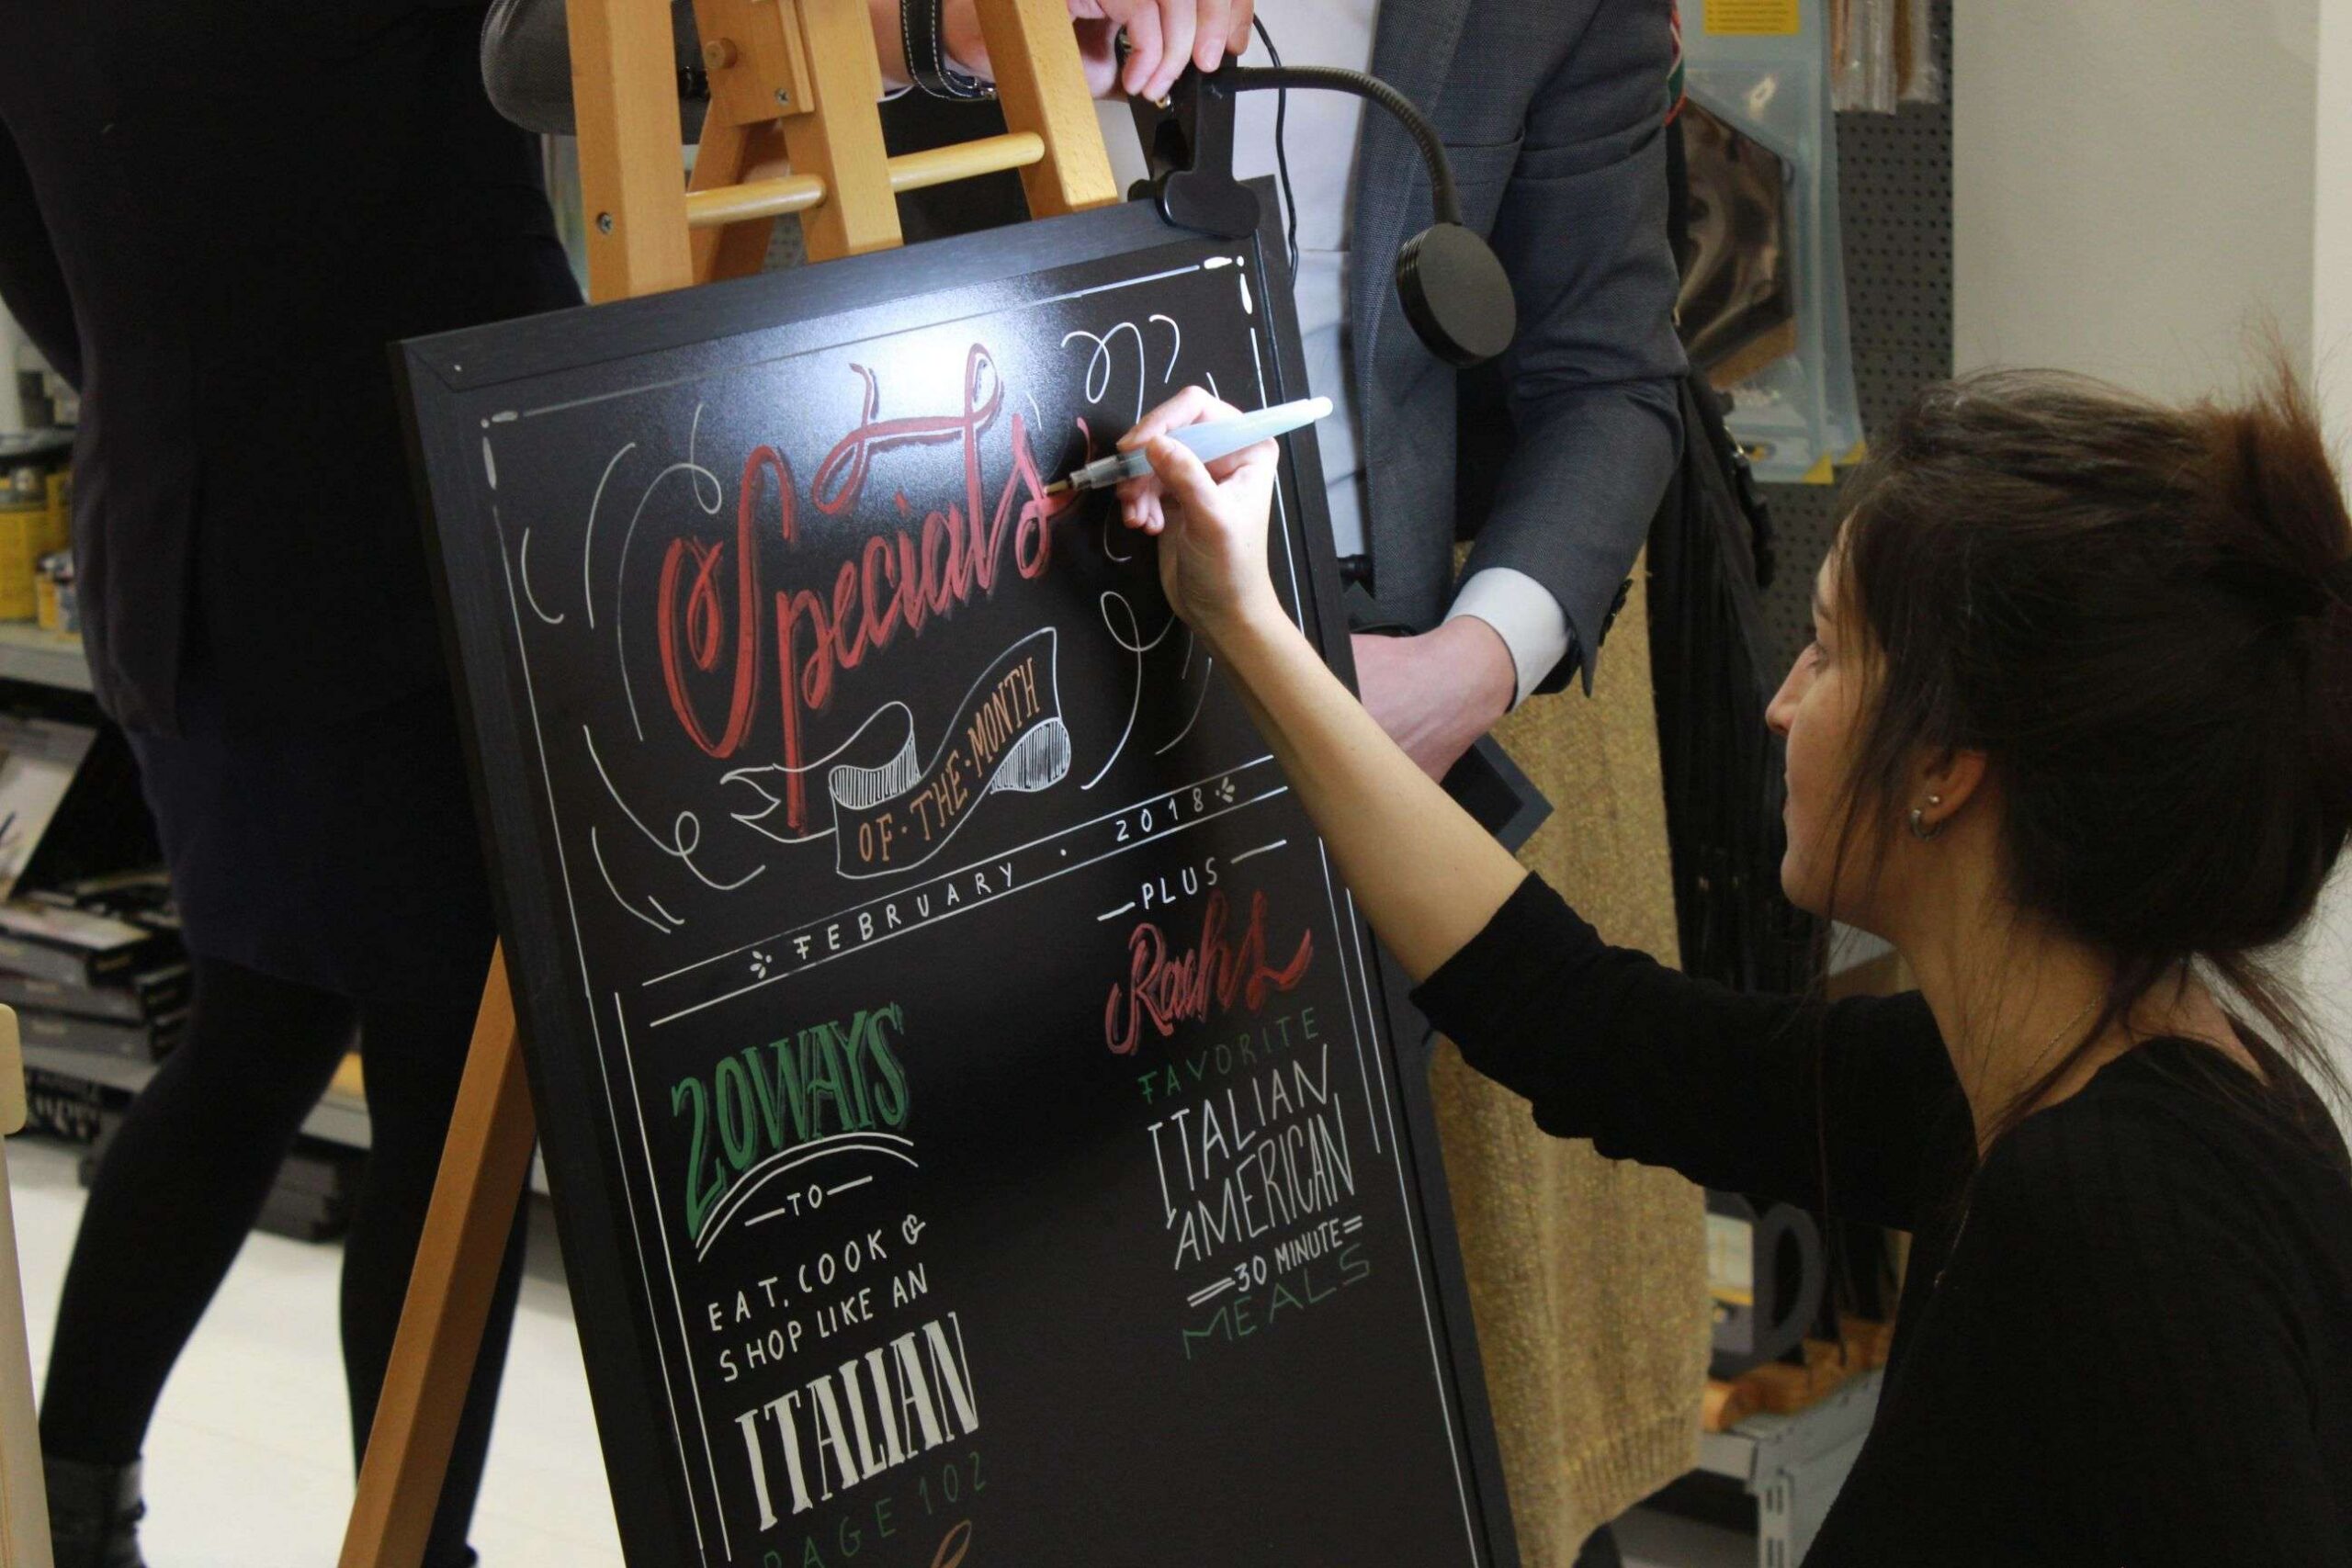 Specials
OF·THE·MONTH
FEBRUARY · 2018
20WAYS
TO
EAT, COOK &
SHOP LIKE AN
ITALIAN
PAGE 102
PLUS
Rachs
FAVORITE
ITALIAN
AMERICAN
30 MINUTE
MEALS